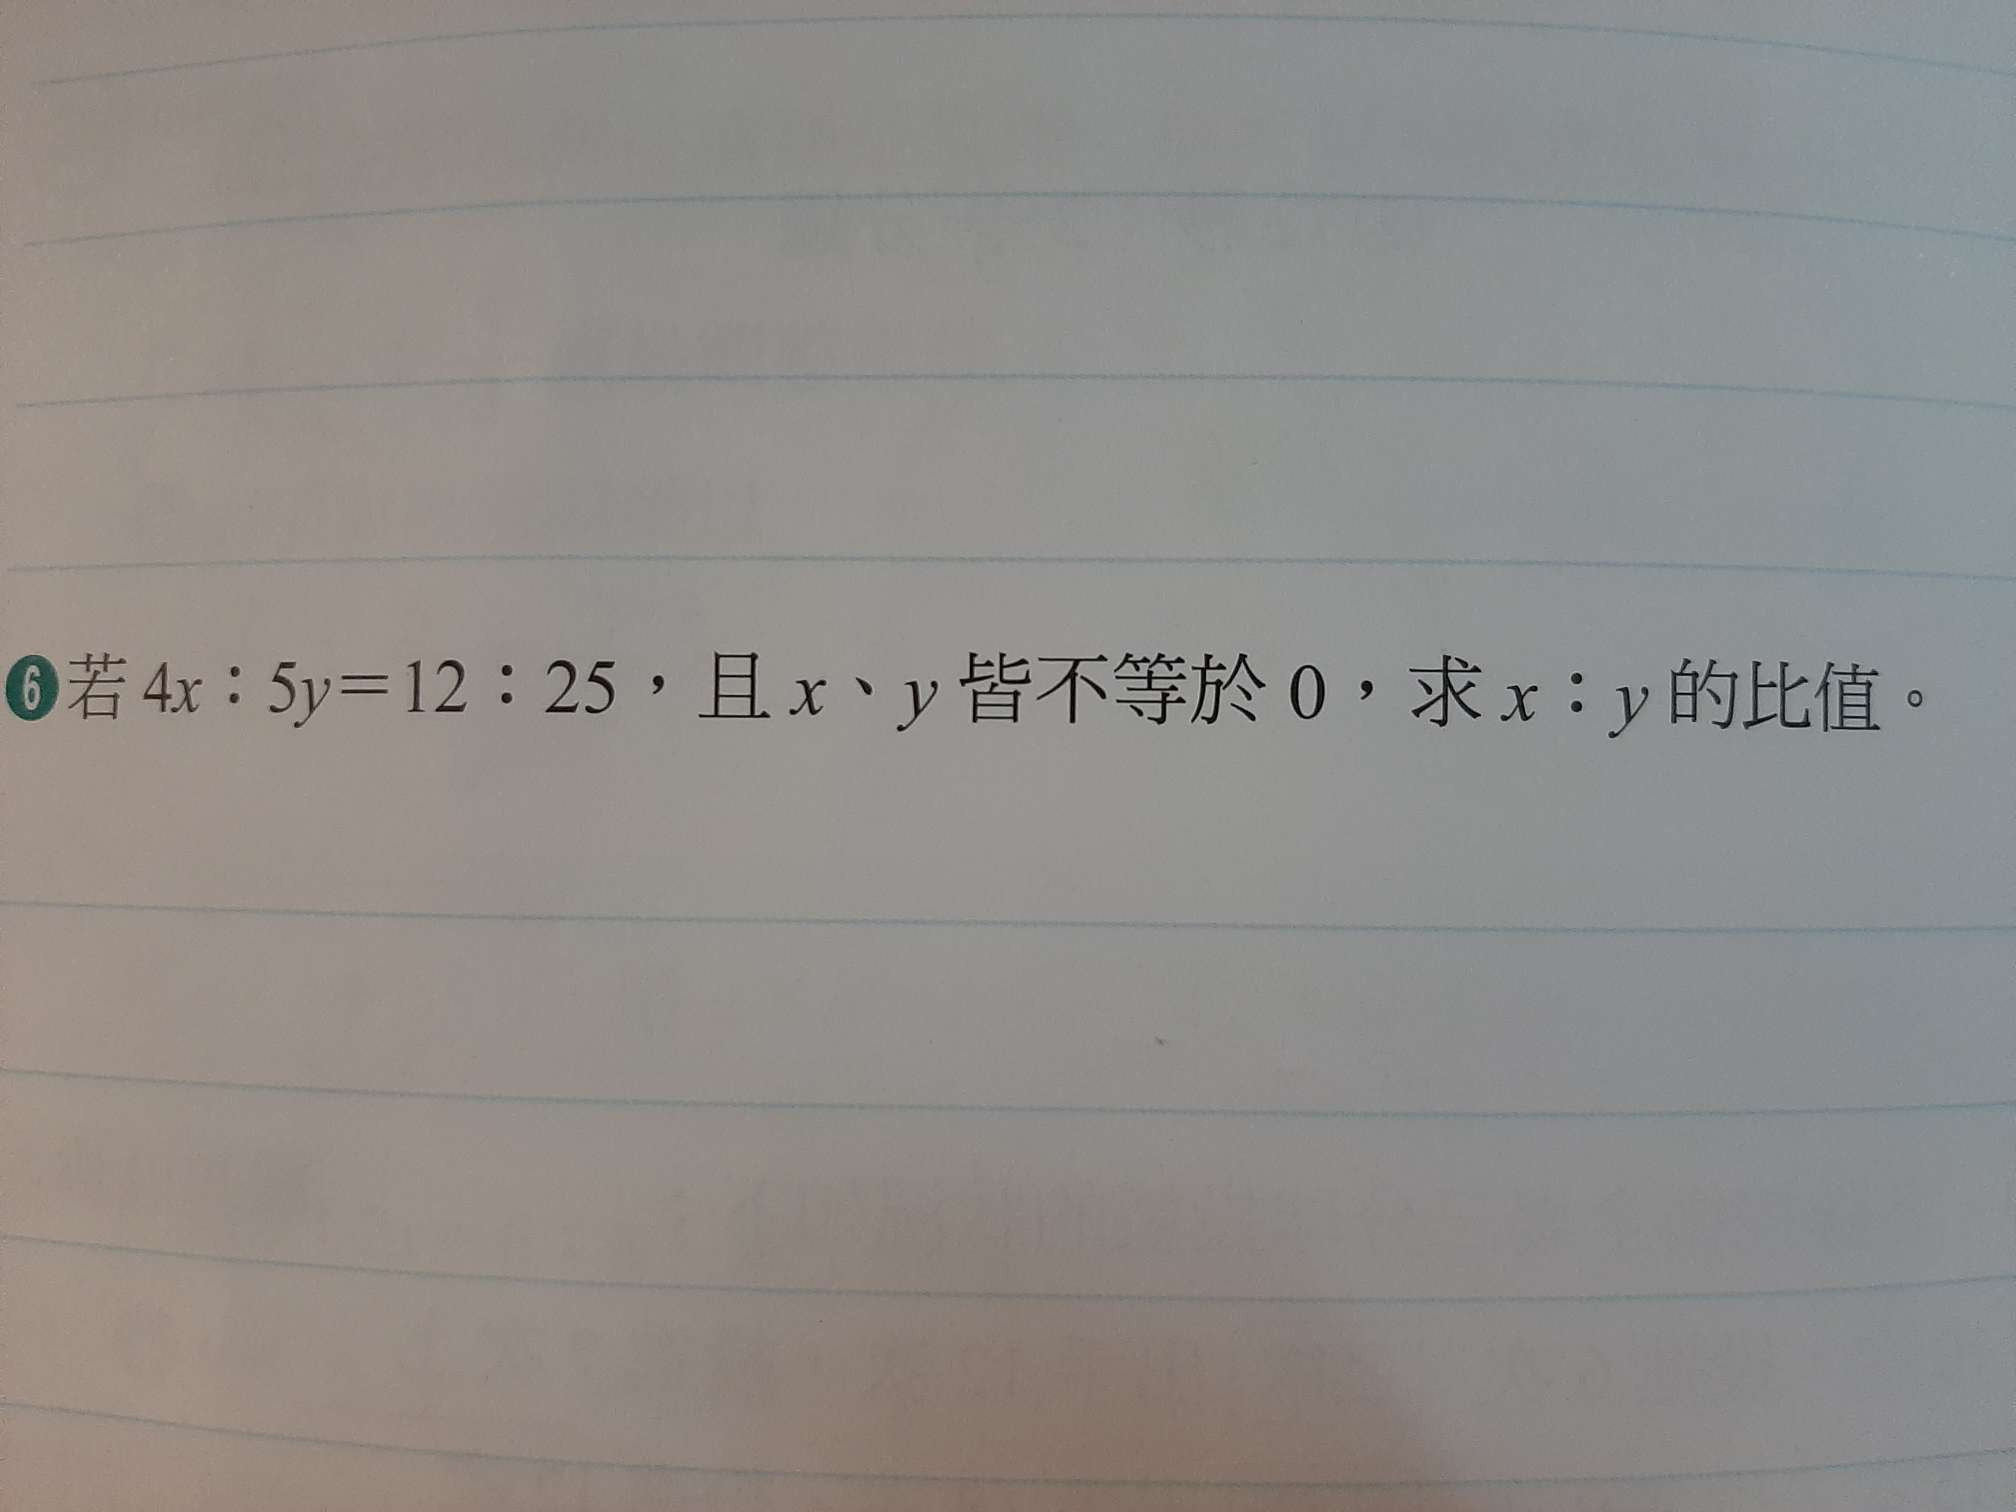 6 若 4x：5y=12：25，且 x、y 皆不等於 0，求 x：y 的比值。